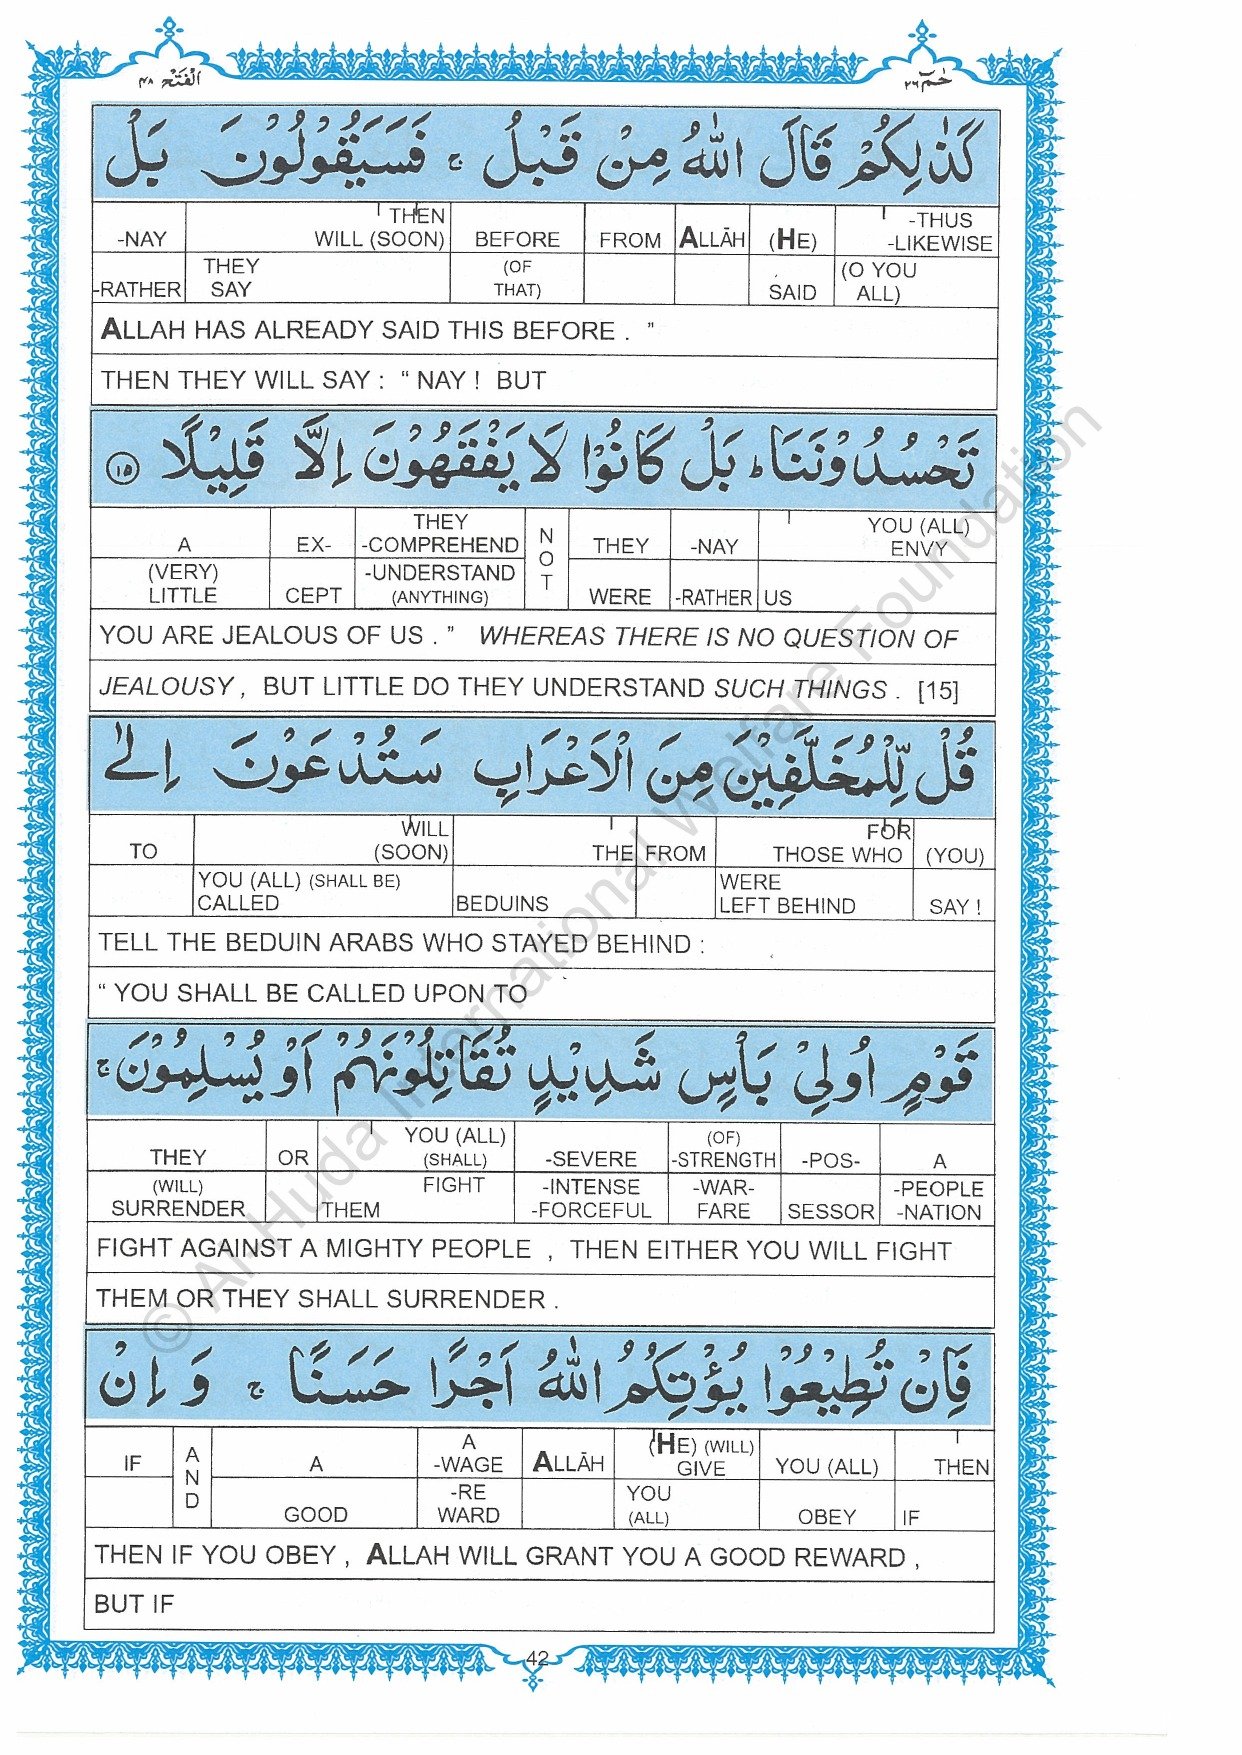 حٰمٓ ٢٦
الفتح ٤٨
كَذٰلِكُمْ قَالَ اللّٰهُ مِنْ قَبْلُ ۚ فَسَيَقُوْلُوْنَ بَلْ
-THUS (HE) ALLĀH FROM BEFORE THEN -NAY
-LIKEWISE WILL (SOON)
(O YOU ALL) SAID (OF THAT) THEY SAY -RATHER
ALLAH HAS ALREADY SAID THIS BEFORE . ”
THEN THEY WILL SAY : “ NAY ! BUT
تَحْسُدُوْنَنَا ؕ بَلْ كَانُوْا لَا يَفْقَهُوْنَ اِلَّا قَلِيْلًا ١٥
YOU (ALL) ENVY -NAY THEY NOT THEY -COMPREHEND EX- A
US -RATHER WERE -UNDERSTAND (ANYTHING) CEPT (VERY) LITTLE
YOU ARE JEALOUS OF US . ” WHEREAS THERE IS NO QUESTION OF
JEALOUSY , BUT LITTLE DO THEY UNDERSTAND SUCH THINGS . [15]
قُلْ لِّلْمُخَلَّفِيْنَ مِنَ الْاَعْرَابِ سَتُدْعَوْنَ اِلٰى
(YOU) FOR THOSE WHO FROM THE WILL (SOON) TO
SAY ! WERE LEFT BEHIND BEDUINS YOU (ALL) (SHALL BE) CALLED
TELL THE BEDUIN ARABS WHO STAYED BEHIND :
“ YOU SHALL BE CALLED UPON TO
قَوْمٍ اُولِيْ بَاْسٍ شَدِيْدٍ تُقَاتِلُوْنَهُمْ اَوْ يُسْلِمُوْنَ ۚ
A -POS- (OF) -STRENGTH -SEVERE YOU (ALL) (SHALL) OR THEY
-PEOPLE -NATION SESSOR -WAR- FARE -INTENSE -FORCEFUL FIGHT THEM (WILL) SURRENDER
FIGHT AGAINST A MIGHTY PEOPLE , THEN EITHER YOU WILL FIGHT
THEM OR THEY SHALL SURRENDER .
فَاِنْ تُطِيْعُوْا يُؤْتِكُمُ اللّٰهُ اَجْرًا حَسَنًا ۚ وَ اِنْ
THEN YOU (ALL) (HE) (WILL) GIVE ALLĀH A -WAGE A AND IF
IF OBEY YOU (ALL) -RE WARD GOOD
THEN IF YOU OBEY , ALLAH WILL GRANT YOU A GOOD REWARD ,
BUT IF
42
© Al Huda International Welfare Foundation